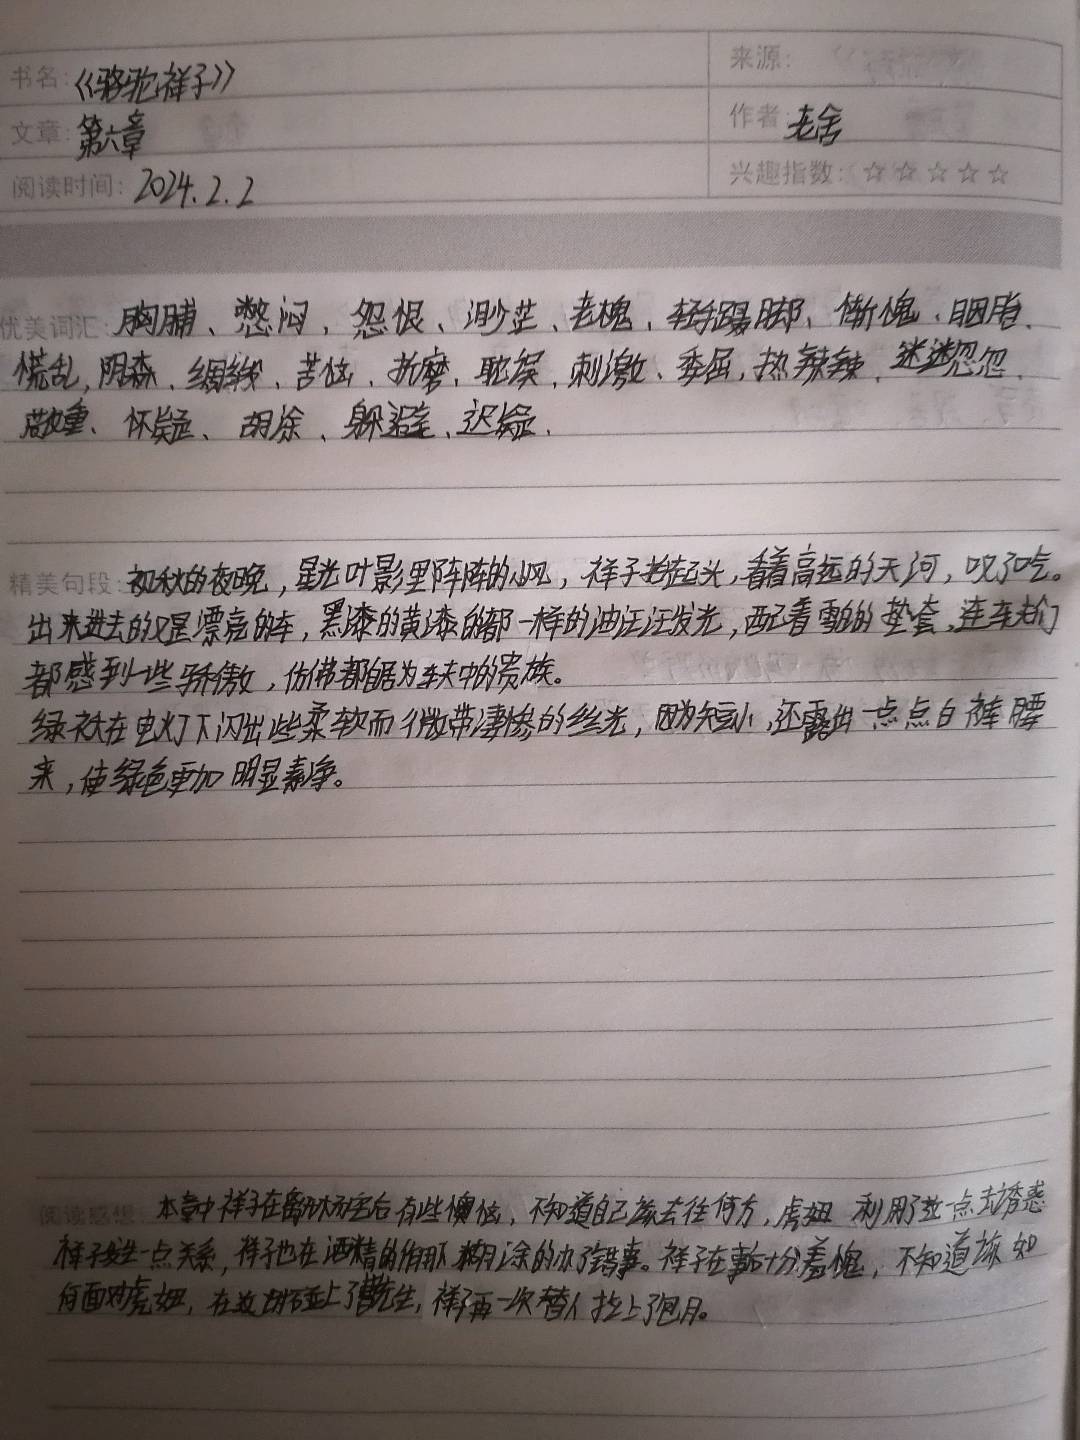 书名：《骆驼祥子》
来源：
文章：第六章
作者：老舍
阅读时间：2024.2.2
兴趣指数：☆☆☆☆☆
优美词汇：胸脯、憋闷、怨恨、渺茫、老槐、轻手蹑脚、惭愧、胭脂、
慌乱，阴森、绸线、苦恼、折磨、耽误、刺激、委屈，热辣辣、迷迷忽忽、
敬重、怀疑、胡涂、躲避、迟疑、
精美句段：初秋的夜晚，星光叶影里阵阵的小风，祥子抬起头，看着高远的天河，叹了口气。
出来进去的又是漂亮的车，黑漆的黄漆的都一样的油汪汪发光，配着雪白的垫套，连车夫们
都感到一些骄傲，仿佛都自居为车夫中的贵族。
绿袄在电灯下闪出些柔软而微带凄惨的丝光，因为短小，还露出一点点白裤腰
来，使绿色更加明显素净。
阅读感想：本章中祥子在离开杨宅后有些懊恼，不知道自己该去往何方，虎妞利用了这一点去诱惑
祥子发生一点关系，祥子也在酒精的作用下糊涂的办了错事。祥子在事后十分羞愧，不知道该如
何面对虎妞，在这时碰上了曹先生，祥子再一次替人拉上了包月。